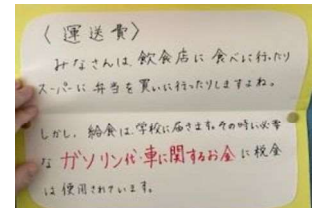 〈運送費〉
みなさんは、飲食店に食べに行ったり
スーパーに弁当を買いに行ったりしますよね。
しかし、給食は、学校に届きます。その時に必要
なガソリン代・車に関するお金に税金
は使用されています。